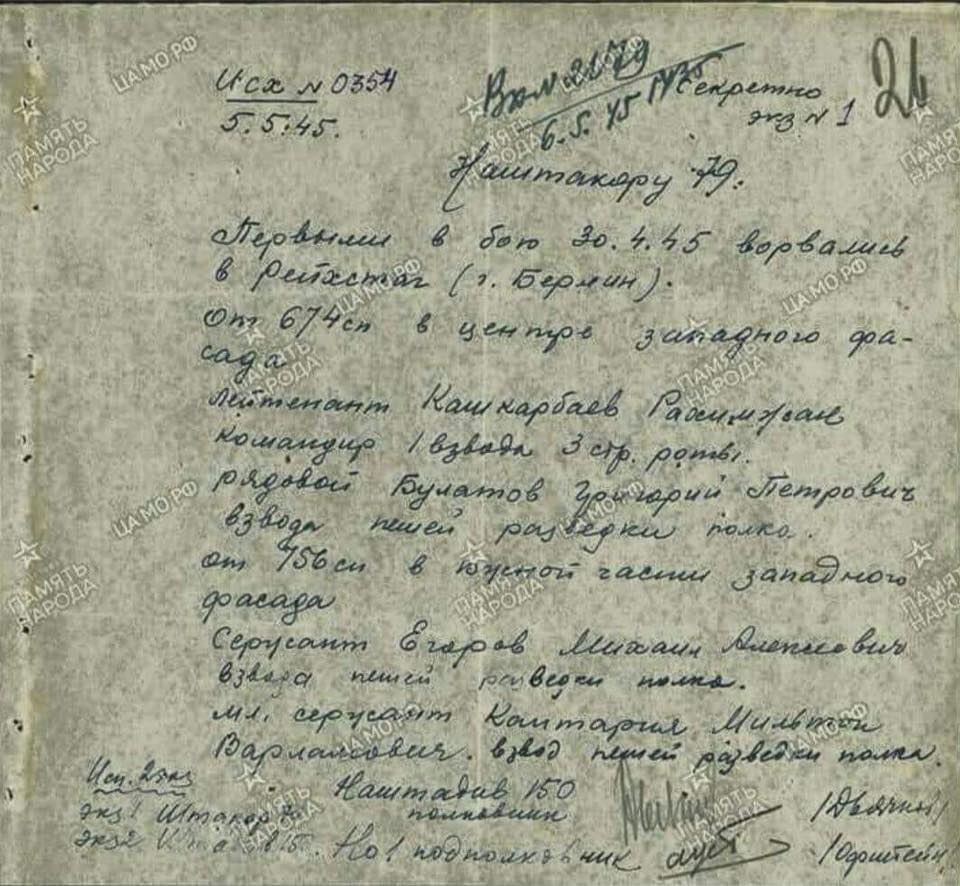 Исх № 0354
5.5.45.
Вх № 2179
6.5.45
Секретно
экз № 1
26
Наштакору 79.
Первыми в бою 30.4.45 ворвались
в Рейхстаг (г. Берлин).
От 674 сп в центре западного фа-
сада
лейтенант Кашкарбаев Рахимжан
командир 1 взвода 3 стр. роты.
рядовой Булатов Григорий Петрович
взвода пешей разведки полка.
от 756 сп в южной части западного
фасада
Сержант Егоров Михаил Алексеевич
взвода пешей разведки полка.
мл. сержант Кантария Мильтон
Варламович. взвод пешей разведки полка.
Исп. 2 экз
экз 1 Штакор 79
экз 2
Наштадив 150
полковник /Дьячков/
НО 1 подполковник /Офштейн/
ЦАМО.РФ
ПАМЯТЬ
НАРОДА